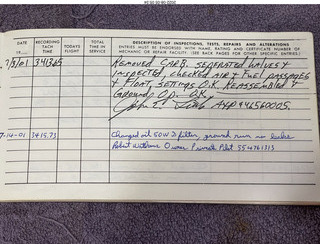 2022 08 20 05:34
DATE
19
RECORDING
TACH
TIME
TODAYS
FLIGHT
TOTAL
TIME IN
SERVICE
DESCRIPTION OF INSPECTIONS, TESTS, REPAIRS AND ALTERATIONS
ENTRIES MUST BE ENDORSED WITH NAME, RATING AND CERTIFICATE NUMBER OF
MECHANIC OR REPAIR FACILITY. (SEE BACK PAGES FOR OTHER SPECIFIC ENTRIES.)
REMOVED CARB. SEPERATED HALVES &
INSPECTED, CHECKED AIR & FUEL PASSAGES
& FLOAT, SETTINGS O.K. REASSEMBLED &
GROUND OP. O.K.
John A+P 446560005
7-14-01 3415.73 Changed oil 50W & filter, ground run no leaks
Robert Owner Private Pilot 554761313